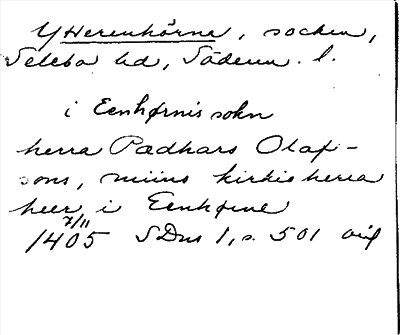 Ytterenhörne, socken,
Selebo hd, Söderm. l.
i Eenhørnis sokn
herra Pædhars Olaf-
sons, miins kirkioherra
heer i Eenhørne
7/11
1405 SDns 1, s. 501 avs